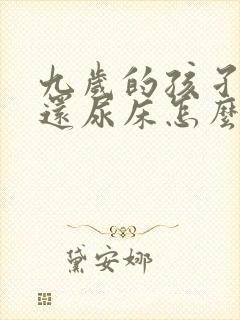 九歲的孩子
還尿床怎麼
黛安娜